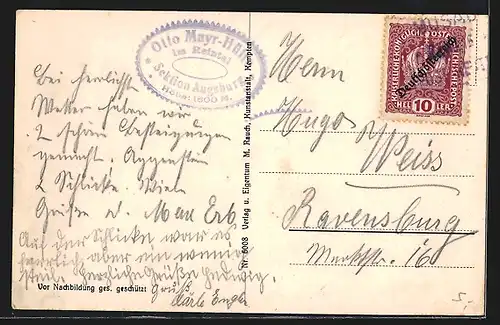 Otto Mayr-Hütte
im Reintal
Sektion Augsburg
Höhe: 1600 M.
Bei herrlichstem
Wetter haben wir
2 schöne Besteigungen
gemacht. Aggenstein
& Schlicke. Viele
Grüße d. Max Erb
Auf der Schlicke war es
herrlich aber ein wenig
steil. Herzliche Grüße Hedwig.
Gruß
Vor Nachbildung ges. geschützt
Nr. 6008 Verlag u. Eigentum M. Rauch, Kunstanstalt, Kempten
KAISERLICHE KÖNIGLICHE ÖSTERREICHISCHE POST
Deutschösterreich
HELLER 10 HELLER
Herrn
Hugo
Weiss
Ravensburg
Marktstr. 16
5.-